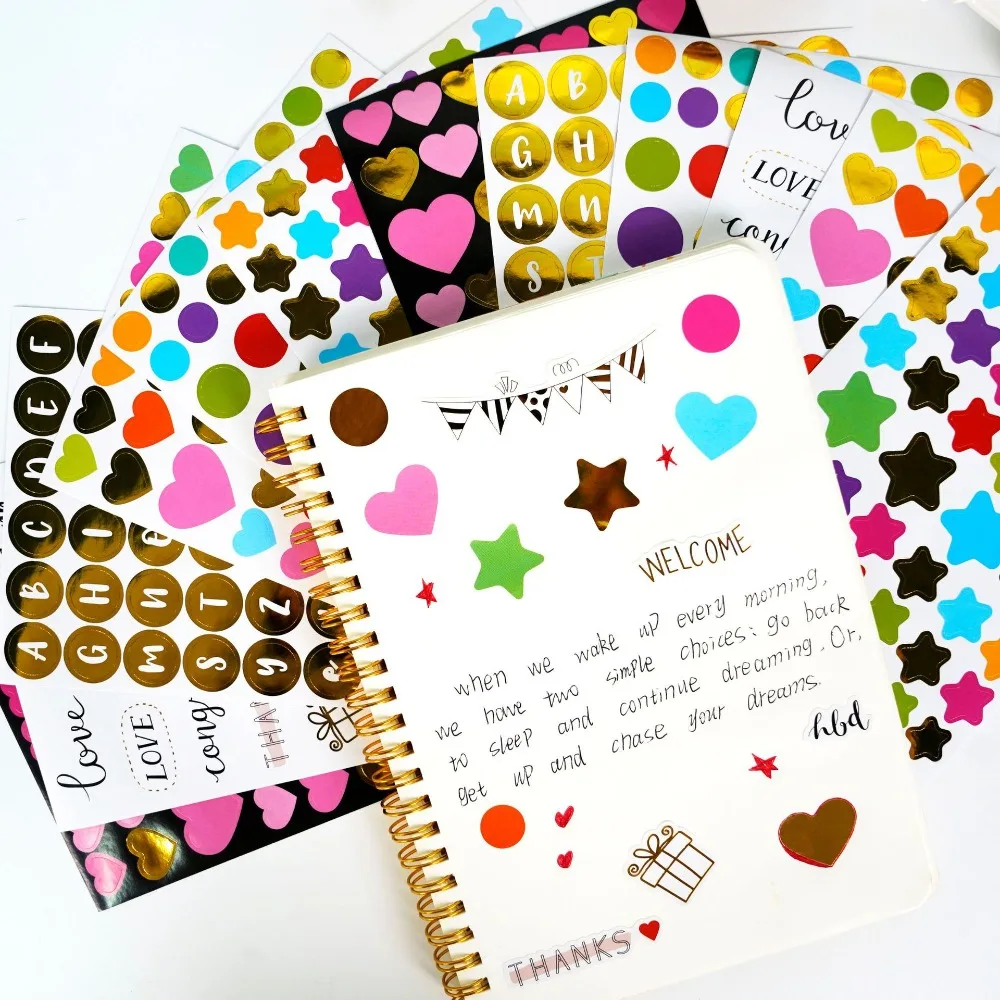 A B
G H
m n
S T
love
LOVE
WELCOME
when we wake up every morning,
we have two simple choices: go back
to sleep and continue dreaming. Or,
get up and chase your dreams.
hbd
THANKS
F
E
n
A B C
G H I
m n
S T
y Z
love
LOVE
cong